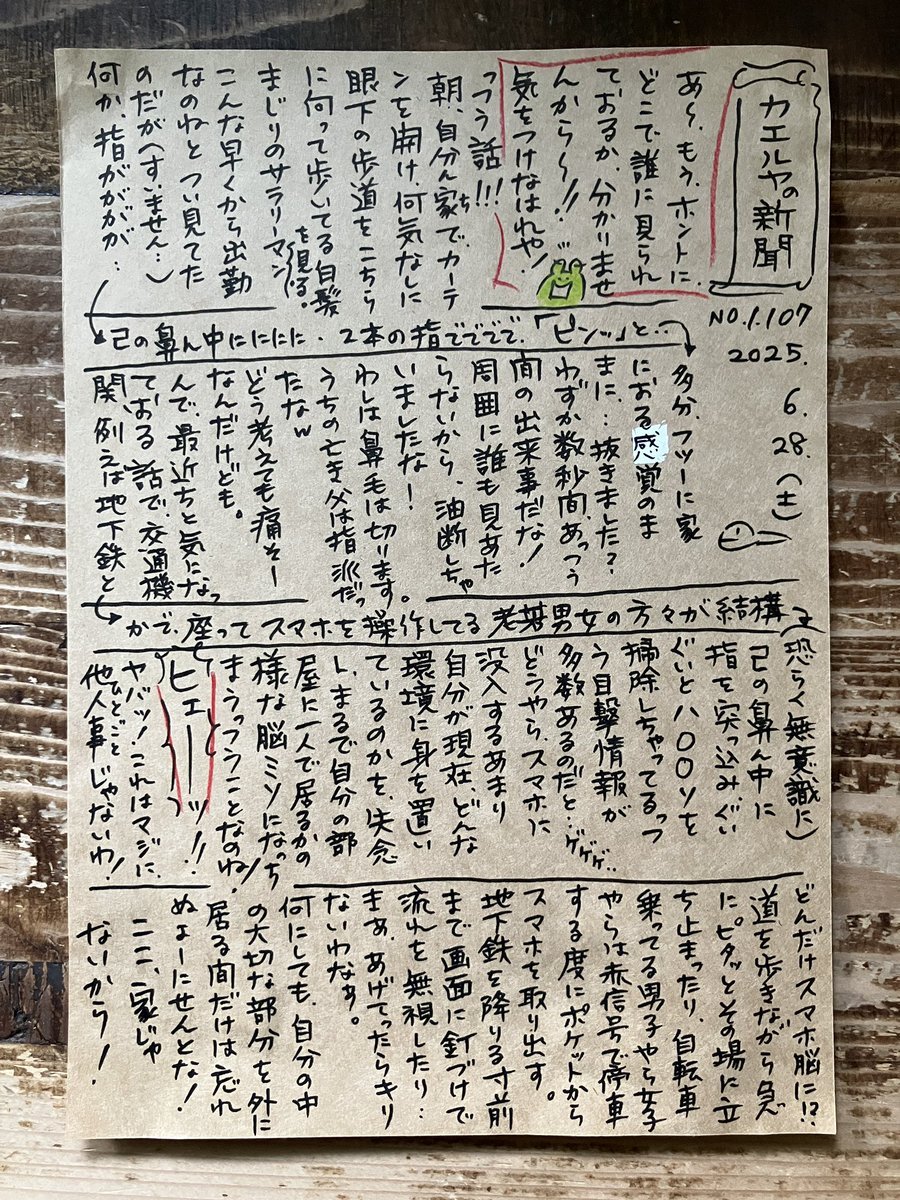 カエルヤの新聞
NO.1.107
2025.
6.
28.(土)
あ〜、もう、ホントに、
どこで誰に見られ
ておるか、分かりませ
んから〜!!
気をつけなはれや!
っつう話!!!
朝、自分ん家(ち)でカーテ
ンを開け、何気なしに
眼下の歩道をこちら
に向って歩いてる白髪
まじりのサラリーマンを視る。
こんな早くから出勤
なのねとつい見てた
のだが(すいません…)
何か、指がががが…
己の鼻ん中にににに、2本の指でででで、「ピンッ」と…
多分、フツーに家
におる感覚のま
まに…抜きました?
わずか数秒間、あっつう
間の出来事だな!
周囲に誰も見あた
らないから、油断しちゃ
いましたな!
わしは鼻毛は切ります。
うちの亡き父は指派だっ
たなw
どう考えても痛そー
なんだけども。
んで、最近ちと気になっ
ておる話で、交通機
関、例えば地下鉄と
かで、座ってスマホを操作してる老若男女の方々が結構
(恐らく無意識に)
己の鼻ん中に
指を突っ込みぐい
ぐいとハ○○ソを
掃除しちゃってるっつ
う目撃情報が
多数あるのだと…ゲゲゲ…
どうやら、スマホに
没入するあまり
自分が現在、どんな
環境に身を置い
ているのかを、失念
し、まるで自分の部
屋に一人で居るかの
様な脳ミソになっち
まうっつうことなのね!
ヒェーーッ!!
ヤバッ!これはマジに、
他人事(ひとごと)じゃないわ!
どんだけスマホ脳に!?
道を歩きながら急
にピタッとその場に立
ち止まったり、自転車
乗ってる男子やら女子
やらは赤信号で停車
する度にポケットから
スマホを取り出す。
地下鉄を降りる寸前
まで画面に釘づけで
流れを無視したり…
きあ、あげてったらキリ
ないわなぁ。
何にしても、自分の中
の大切な部分を外に
居る間だけは忘れ
ぬよーにせんとな!
ここ、家じゃ
ないから!